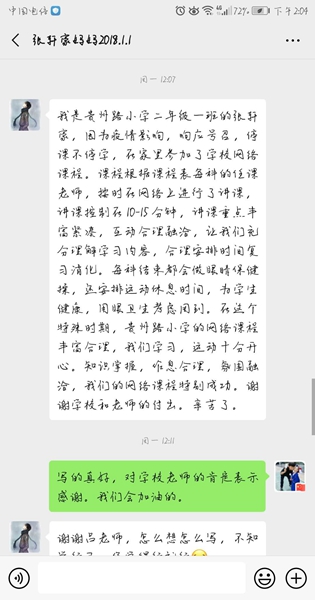 中国电信
72%
下午2:04
张轩豪妈妈2018.1.1
周一 12:07
我是贵州路小学二年级一班的张轩
豪,因为疫情影响,响应号召,停
课不停学,在家里参加了学校网络
课程。课程根据课程表每科的任课
老师,按时在网络上进行了讲课,
讲课控制在10-15分钟,讲课重点丰
富紧凑,互动合理融洽,让我们充
分理解学习内容,合理安排时间复
习消化。每科结束都会做眼睛保健
操,还安排运动休息时间,为学生
健康,用眼卫生考虑周到。在这个
特殊时期,贵州路小学的网络课程
丰富合理,我们学习,运动十分开
心。知识掌握,作息合理,氛围融
洽,我们的网络课程特别成功。谢
谢学校和老师的付出。辛苦了。
周一 12:11
写的真好,对学校老师的
表示
感谢。我们会加油的。
谢谢吕老师,怎么想怎么写,不知